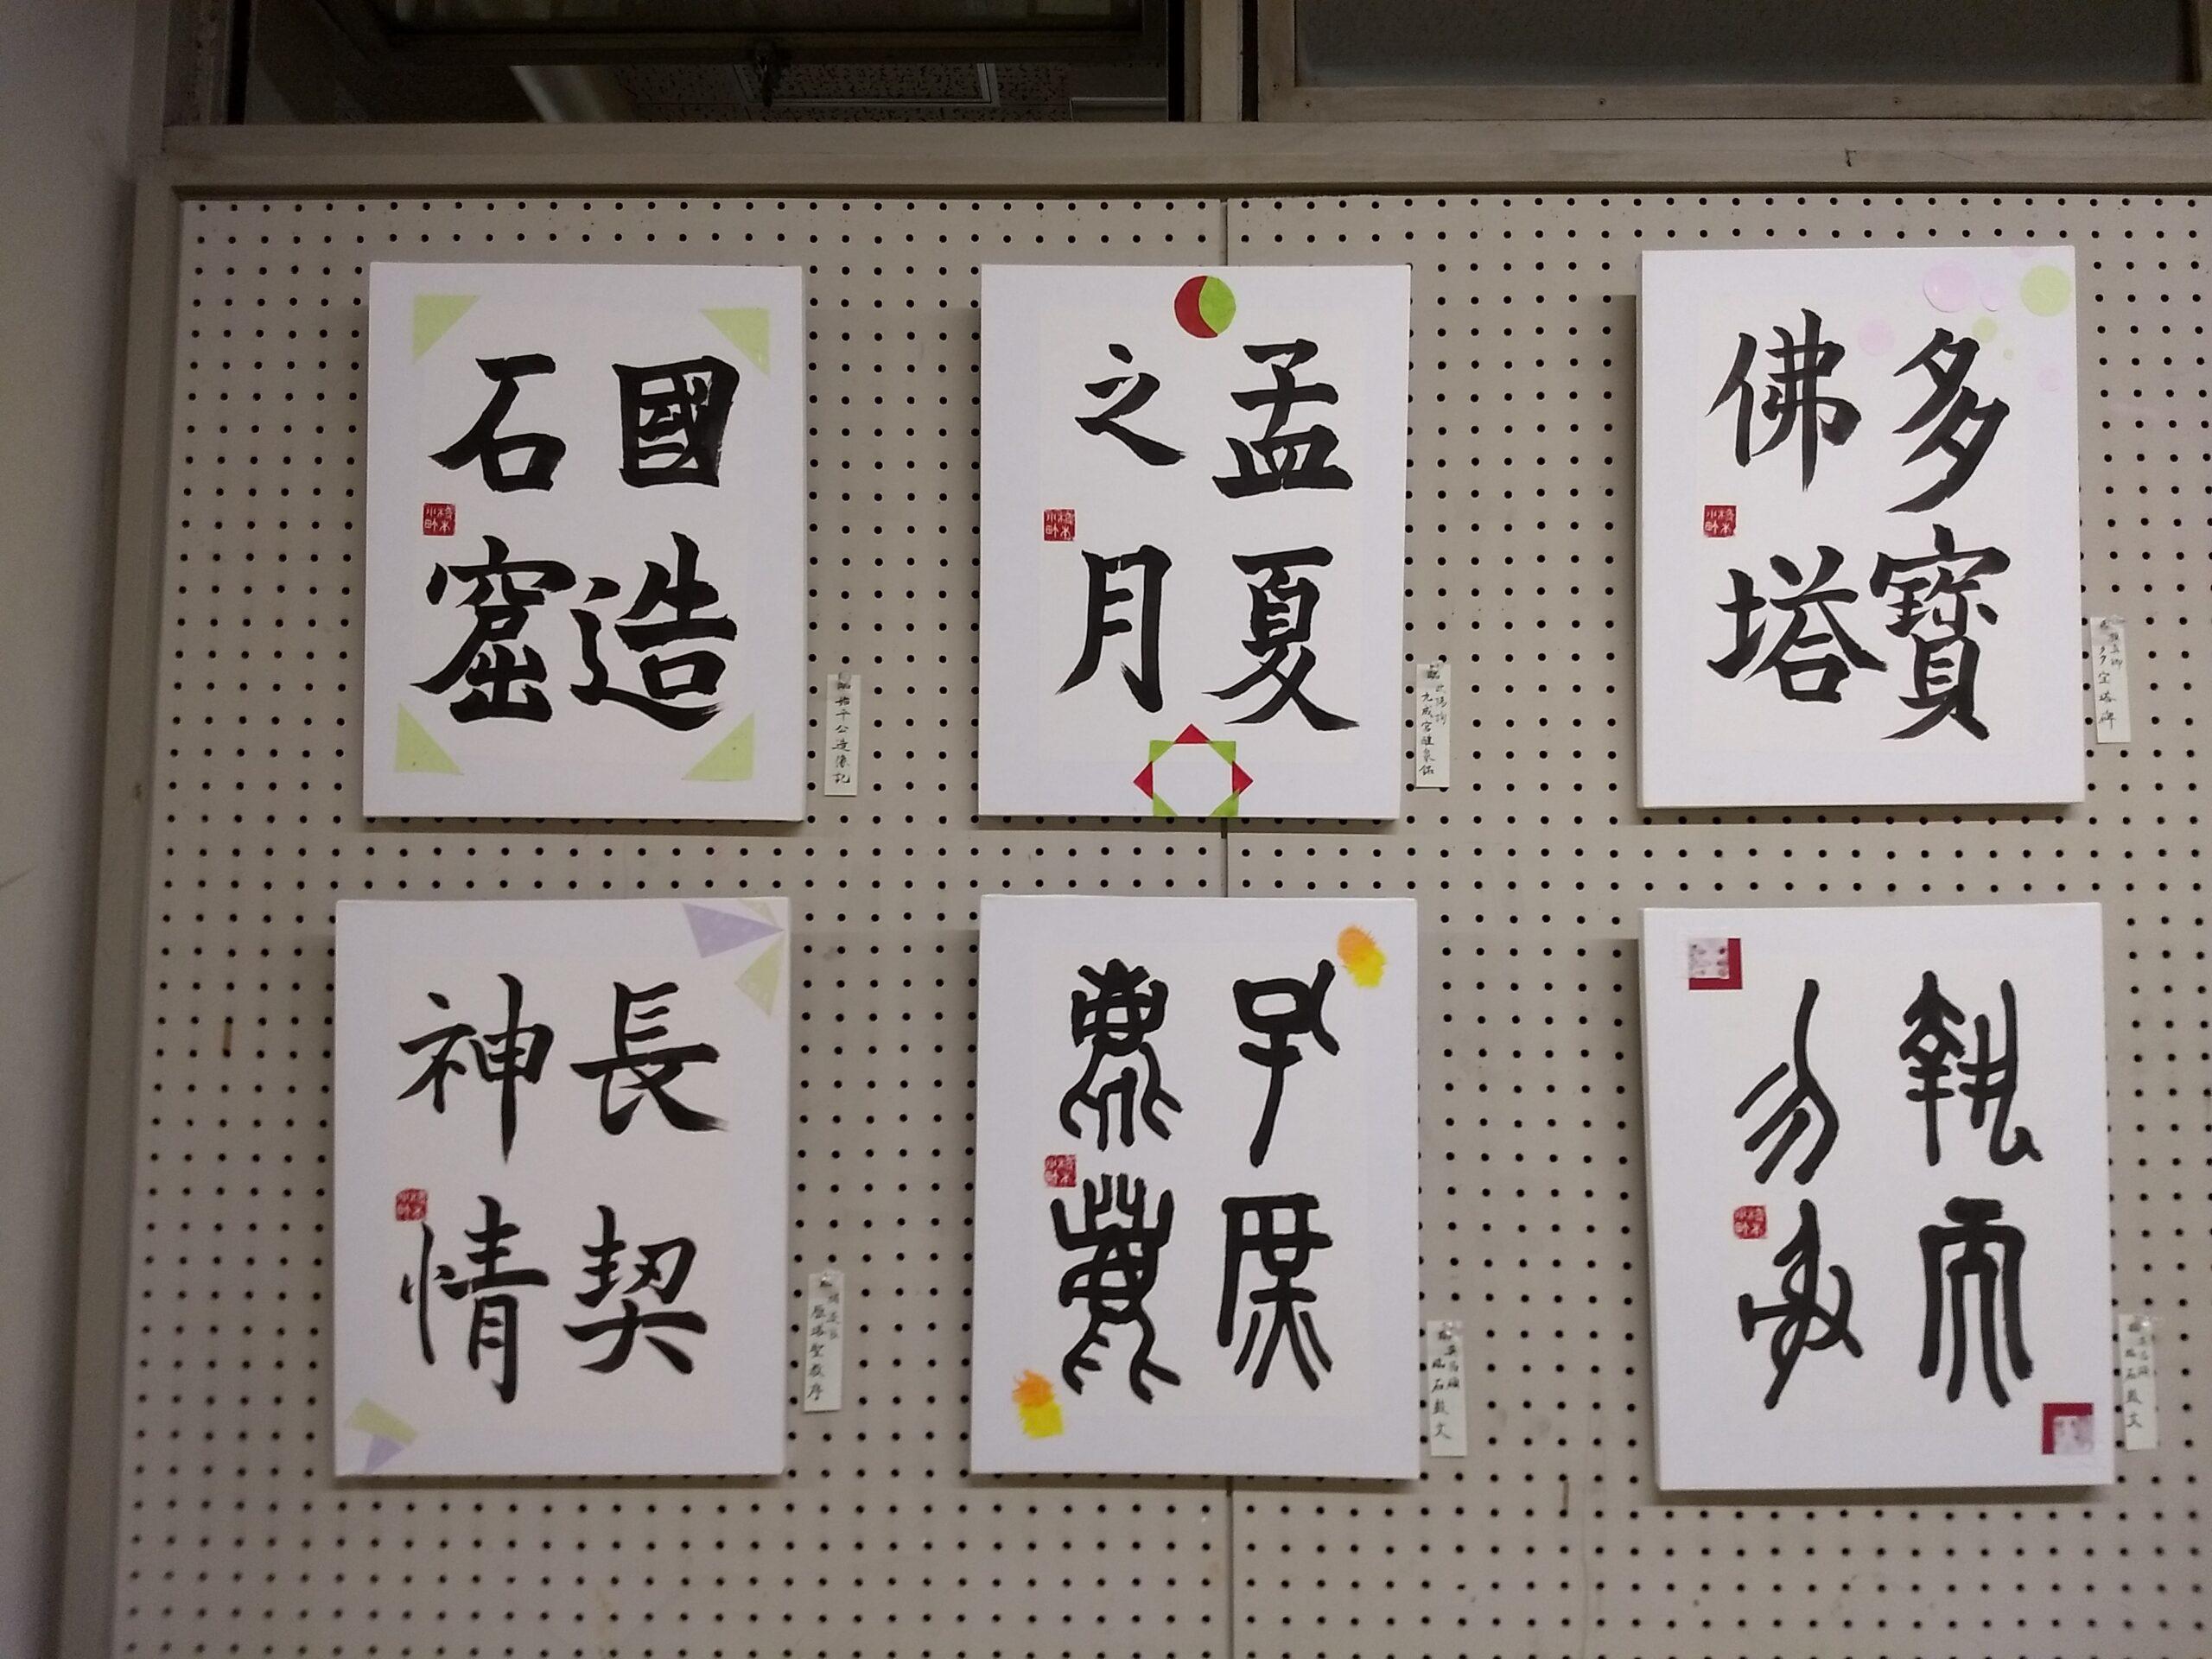 國造
石窟
臨 始平公造像記
孟夏
之月
臨 欧陽詢
九成宮醴泉銘
多寶
佛塔
臨 顔真卿
多宝塔碑
長契
神情
臨 褚遂良
雁塔聖教序
孔庶
臨 呉昌碩
臨石鼓文
執而
勿射
臨 呉昌碩
臨石鼓文